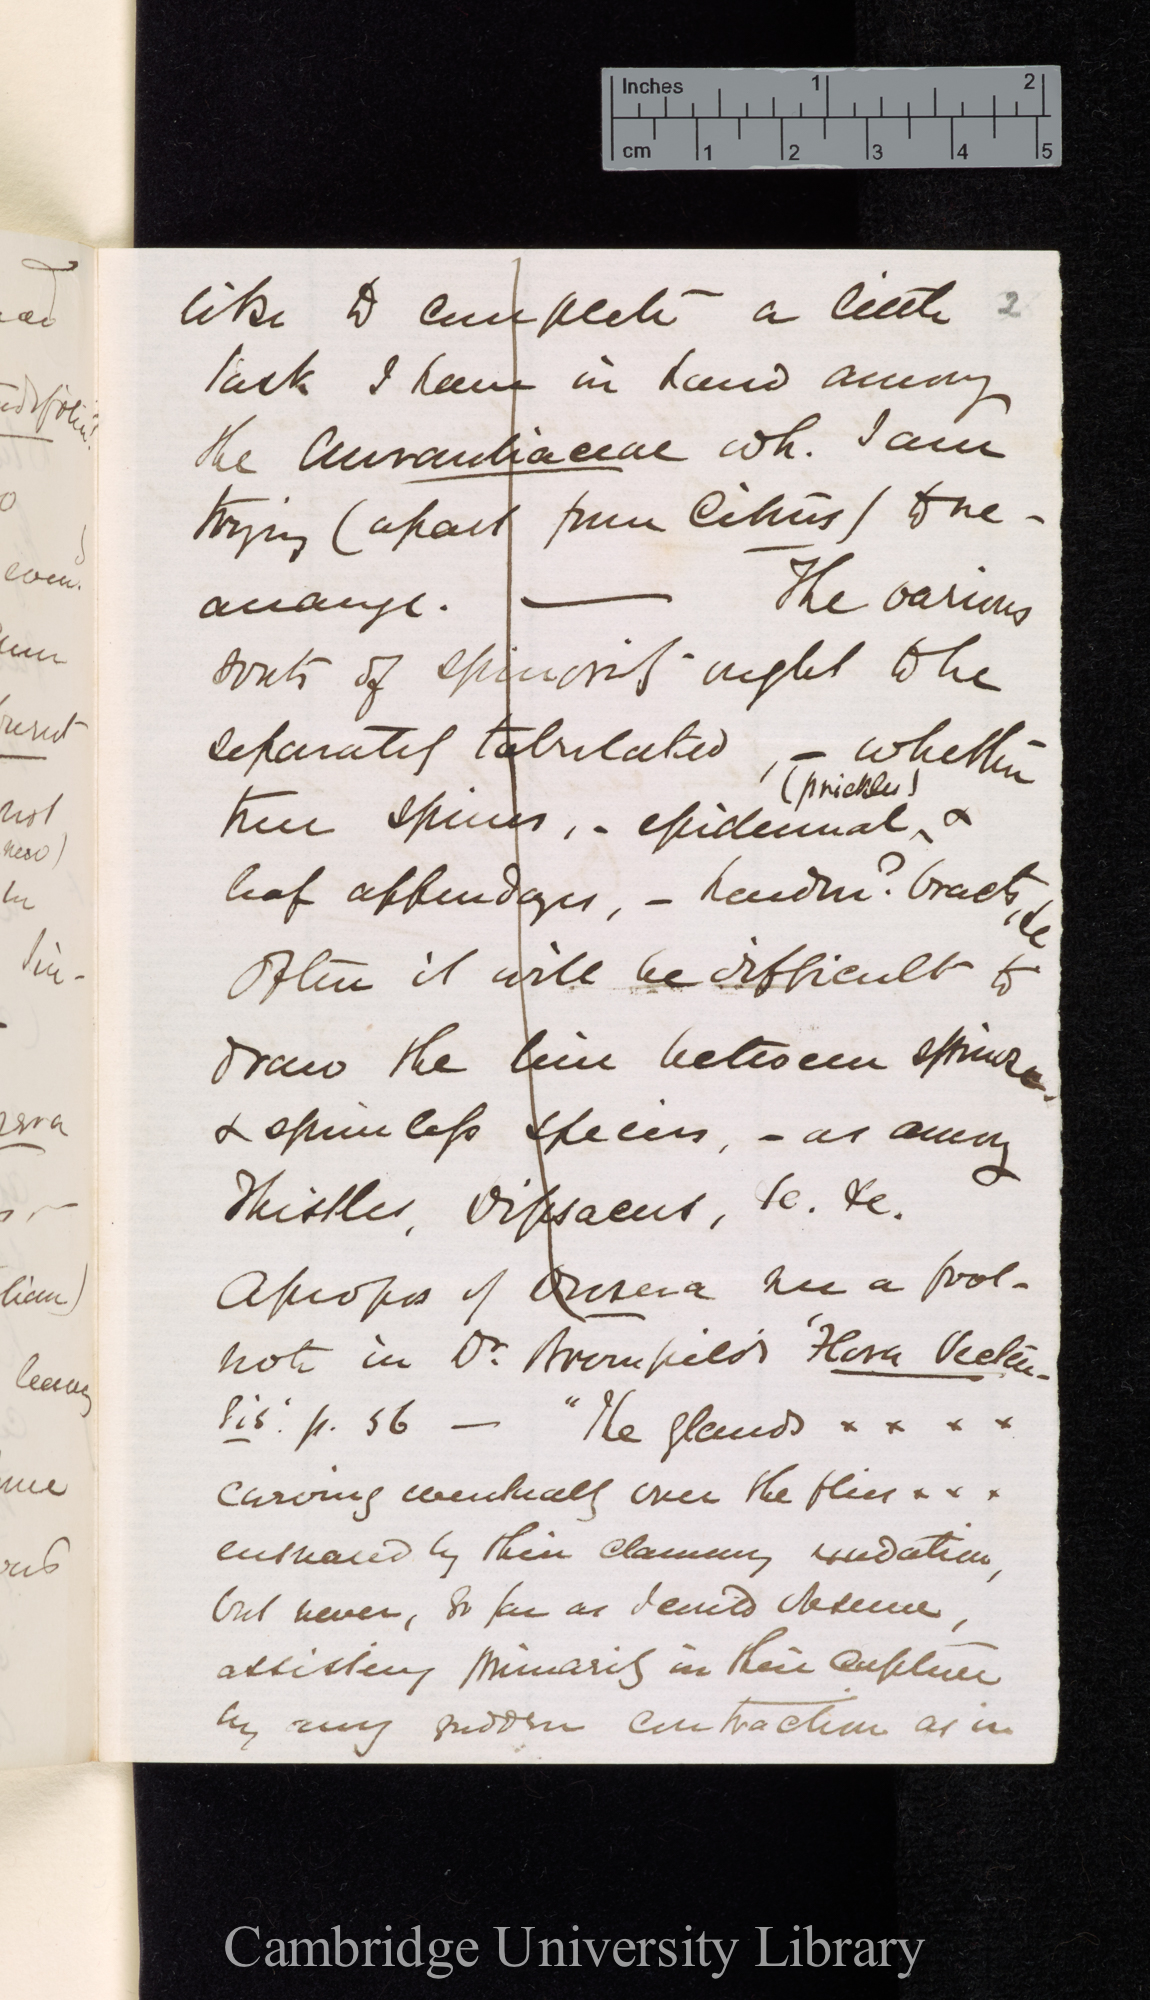 Inches 1 2
cm 1 2 3 4 5
2
like to complete a little
task I have in hand among
the Aurantiaceae wh. I am
trying (apart from Citrus) to re-
arrange. — The various
sorts of spinosity ought to be
separately tabulated, – whether
(prickles)
true spines, – epidermal, &
leaf appendages, – bracts, &c
Often it will be difficult to
draw the line between spinose
& spineless species, – as among
Thistles, Dipsacus, &c. &c.
Apropos of Drosera see a foot-
note in Dr. Bromfield's 'Flora Vecten-
sis'. p. 56 — "The glands × × × ×
curving eventually over the flies × × ×
ensnared by their clammy exudation,
but never, so far as I could observe,
assisting primarily in their capture
by any sudden contraction as in
Cambridge University Library